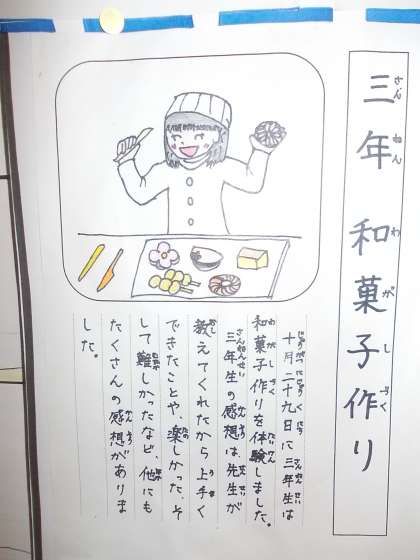 三年 和菓子作り
十月二十九日に三年生は
和菓子作りを体験しました。
三年生の感想は、先生が
教えてくれたから上手く
できたことや、楽しかった、そ
して難しかったなど、他にも
たくさんの感想がありま
した。